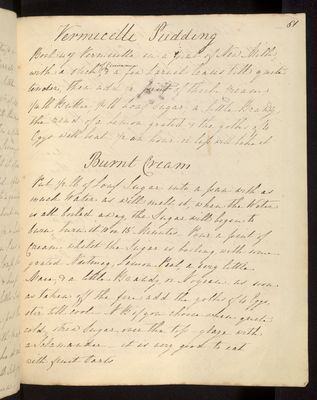 61
Vermicelli Pudding
Boil Vermicelli in a pint of New Milk
with a stick of Cinnamon & a few Laurel leaves till quite
tender, then add a pint of thick cream
¼ lb Butter ¼ lb Loaf Sugar a little Brandy
the rind of a Lemon grated & the yolks of 4
Eggs well beat. ½ an hour or less will bake it
Burnt Cream
Put ¼ lb of Loaf Sugar into a pan with as
much Water as will melt it, when the Water
is all boiled away, the Sugar will begin to
turn, turn it 10 or 15 Minutes. Pour a pint of
Cream, whilst the Sugar is boiling with some
grated Nutmeg, Lemon Peel, a very little
Mace, & a little Brandy or Noyeau as soon
as taken off the fire add the yolks of 4 Eggs
stir till cool. If you choose when quite
cold, strew Sugar over the top & glaze with
a Salamander - it is very good to eat
with fruit Tarts